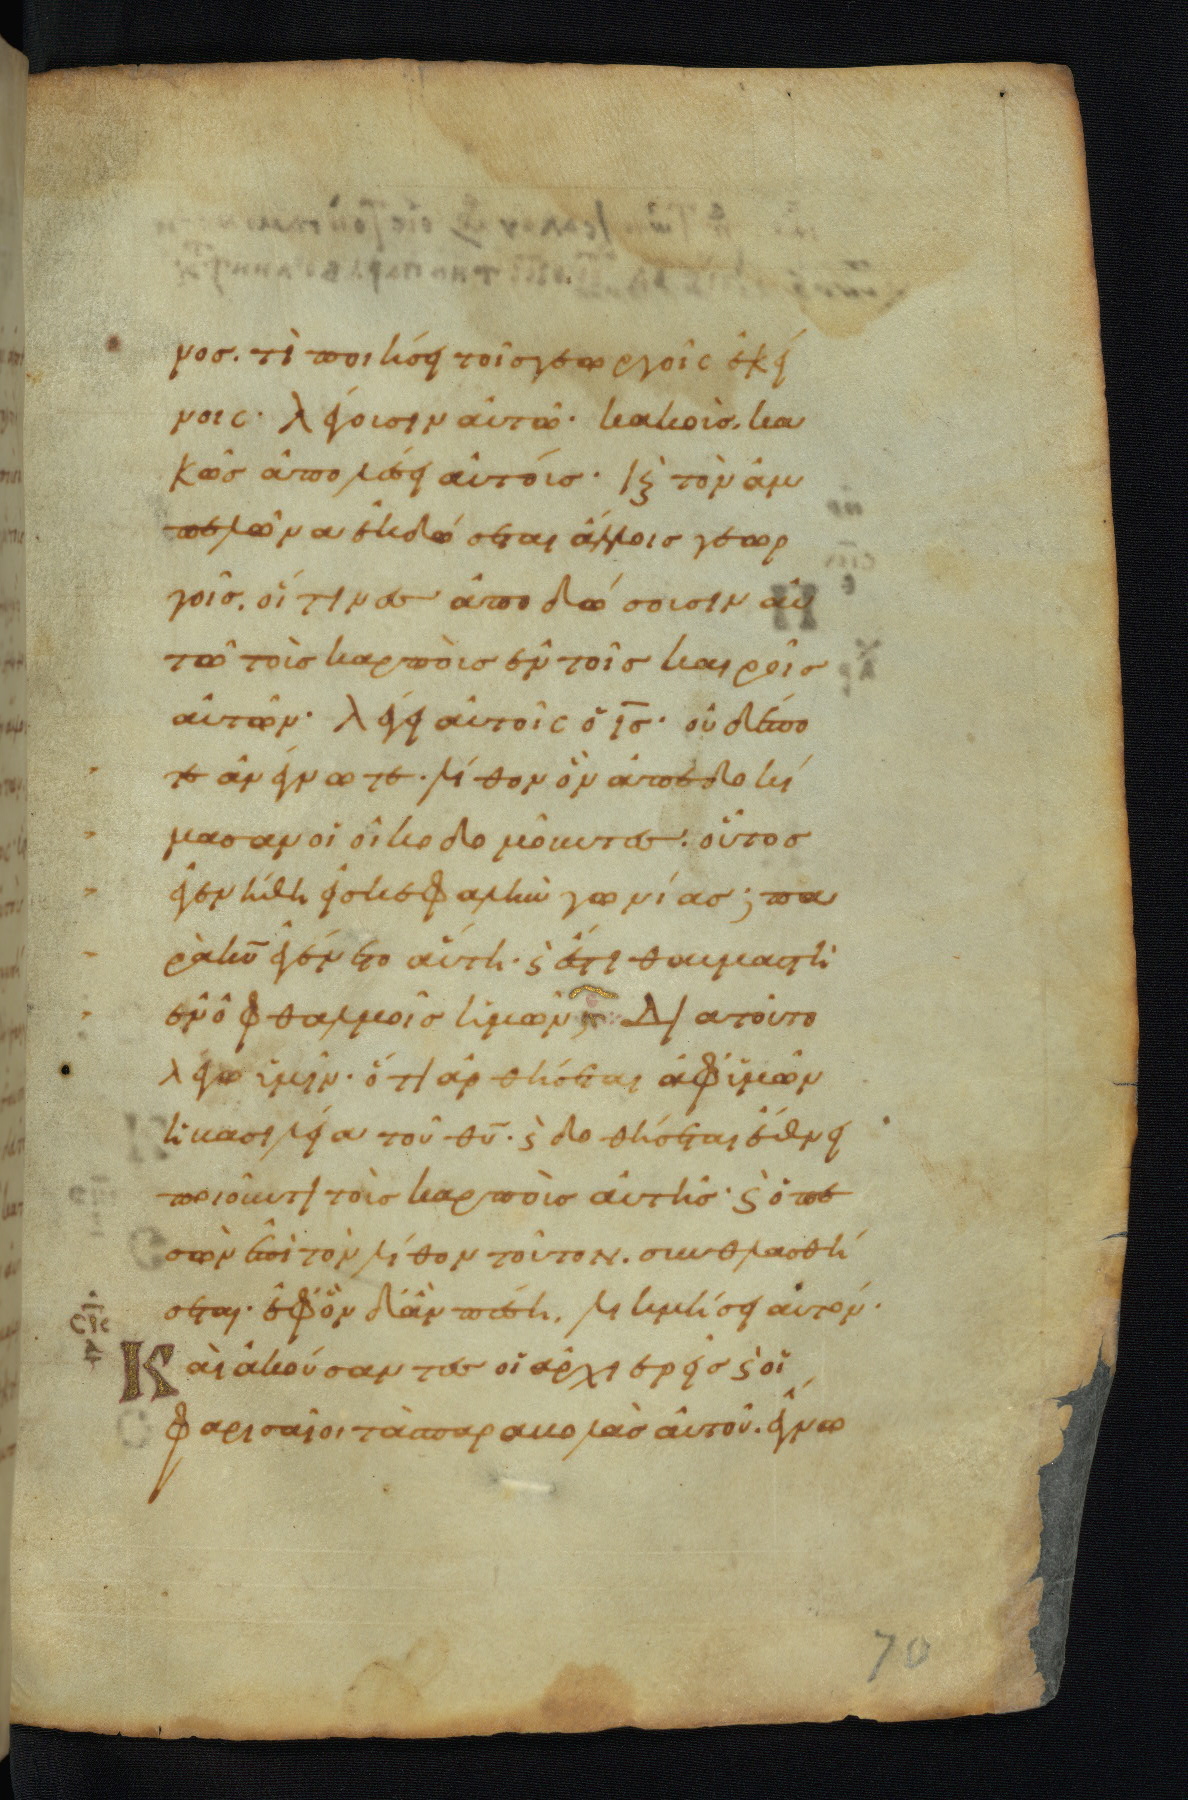 νος. τί ποιήσει τοῖς γεωργοῖς ἐκεί
νοις· λέγουσιν αὐτῶ· κακοὺς κα
κῶς ἀπολέσει αὐτούς· κ(αὶ) τὸν ἀμ
πελῶνα ἐκδώσεται ἄλλοις γεωρ
γοῖς. οἵτινες ἀποδώσουσιν αὐ
τῶ τοὺς καρποὺς ἐν τοῖς καιροῖς
αὐτῶν· λέγει αὐτοῖς ὁ ις̅· οὐδέπο
τε ἀνέγνωτε· λίθον ὃν ἀπεδοκί
μασαν οἱ οἰκοδομοῦντες· οὗτος
ἐγενήθη εἰς κεφαλὴν γωνίας; πα
ρὰ κυ̅ ἐγένετο αὕτη· ϗ ἔστι θαυμαστὴ
ἐν ὀφθαλμοῖς ἡμῶν; Διατοῦτο
λέγω ὑμῖν· ὅτι ἀρθήσεται ἀφ' ὑμῶν
ἡ βασιλεία τοῦ θυ̅· ϗ δοθήσεται ἔθνει
ποιοῦντι τοὺς καρποὺς αὐτῆς· ϗ ὁ πε
σὼν ἐπὶ τὸν λίθον τοῦτον. συνθλασθή
σεται· ἐφ' ὃν δ' ἂν πέση, λικμήσει αὐτόν·
Καὶ ἀκούσαντες οἱ ἀρχιερεῖς ϗ οἱ
φαρισαῖοι τὰς παραβολὰς αὐτοῦ. ἔγνω
70